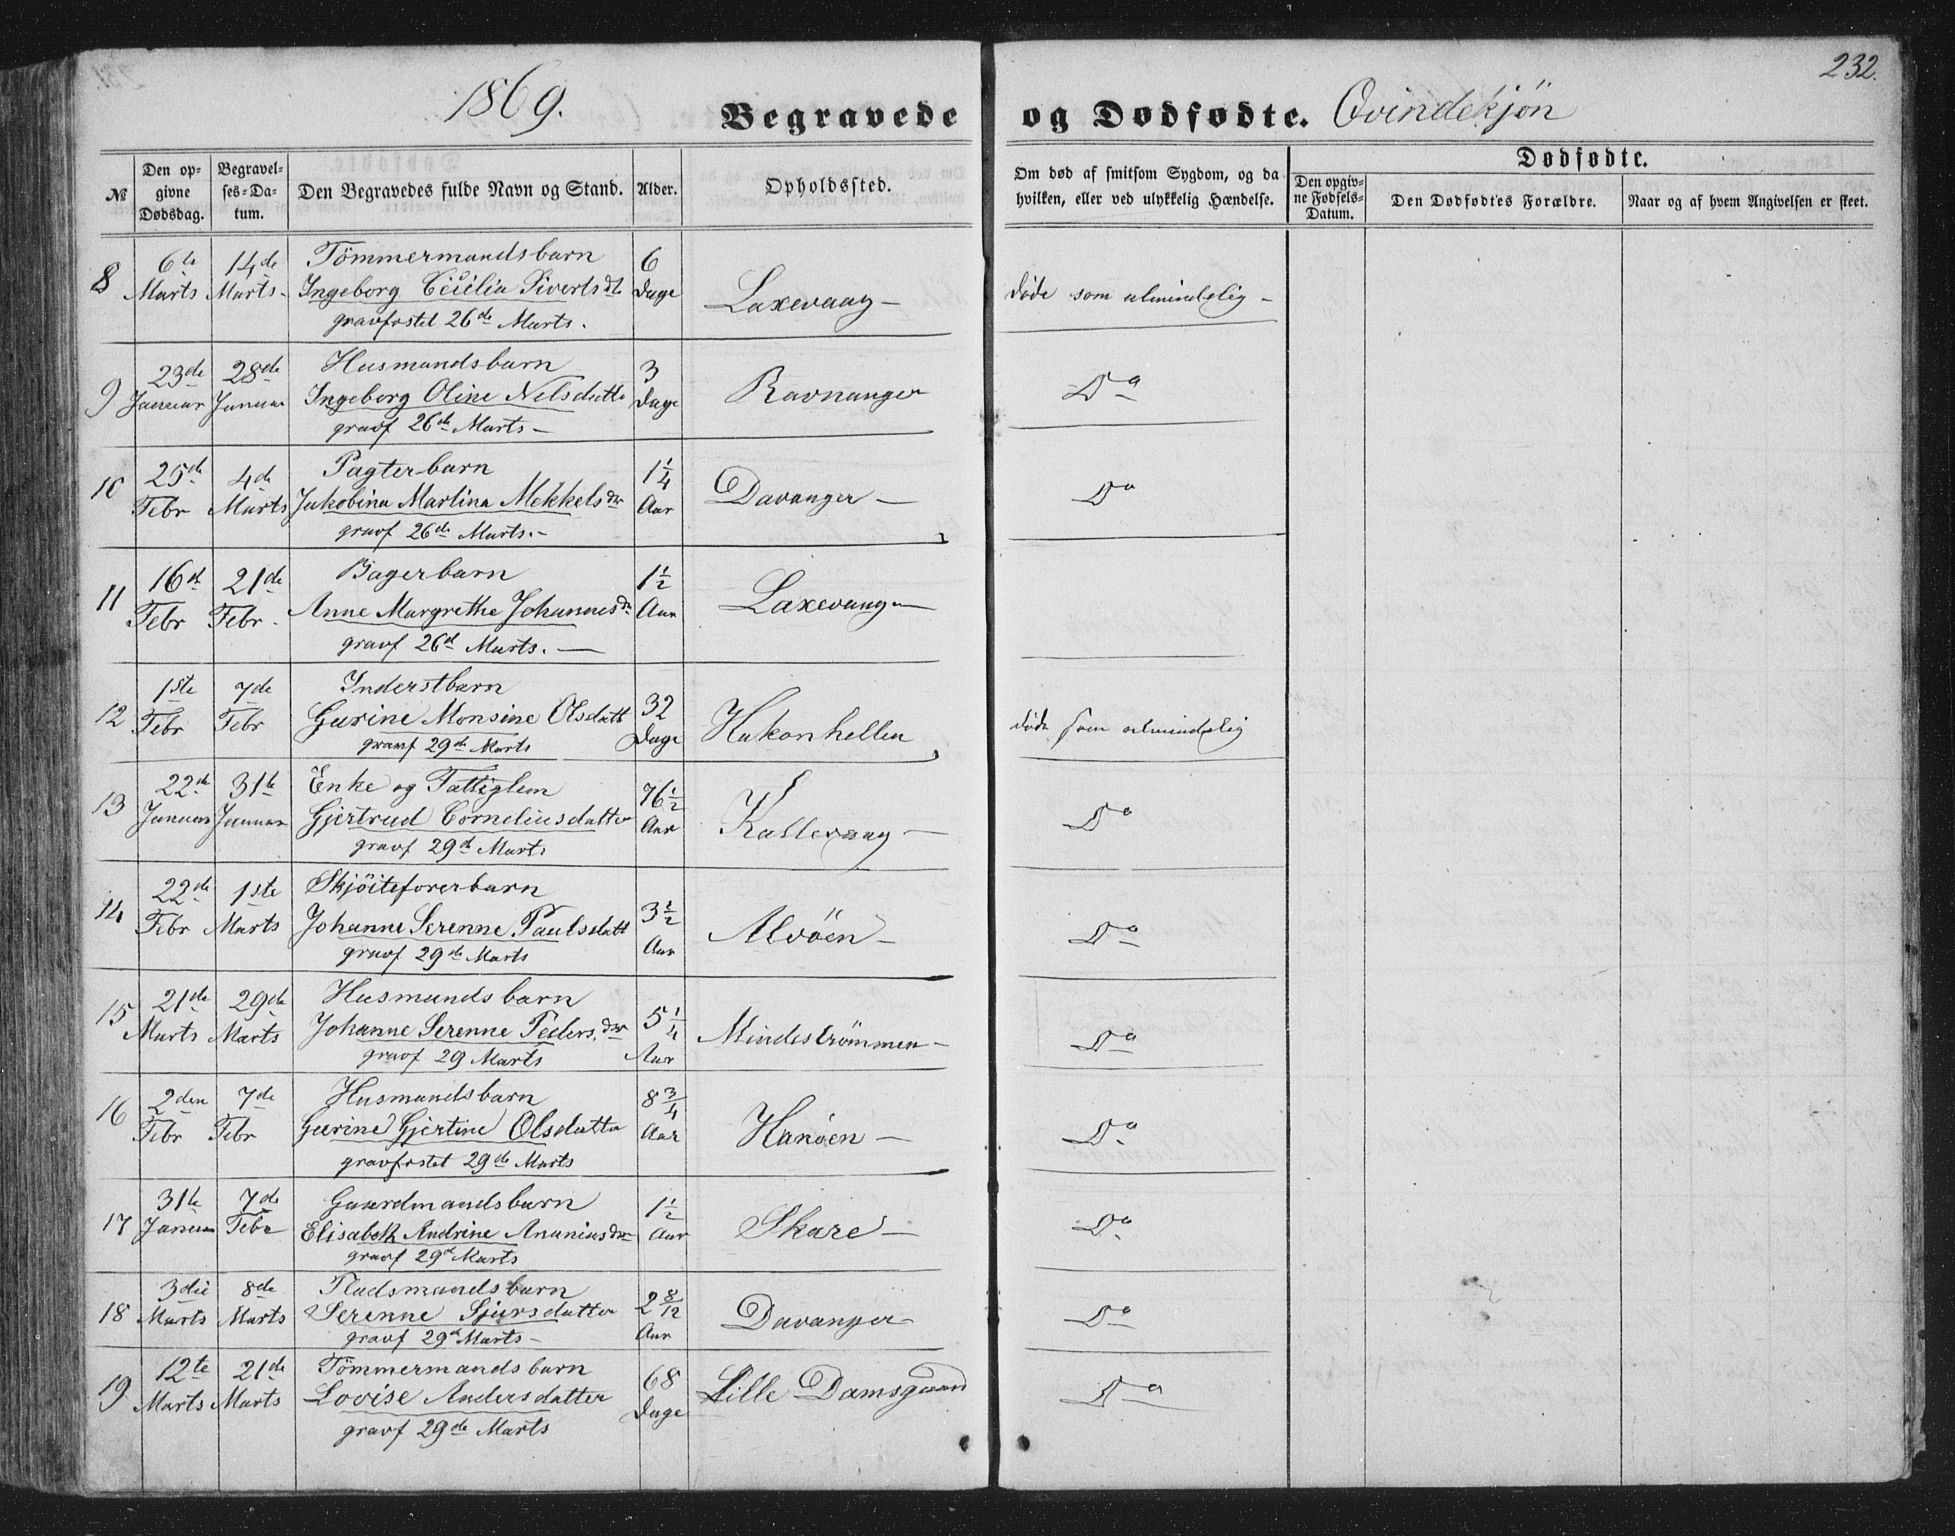 232.
1869. Begravede og Dødfødte. Qvindekjön
№ Den opgivne Dødsdag. Begravelses-Datum. Den Begravedes fulde Navn og Stand. Alder. Opholdssted. Om død af smitsom Sygdom, og da hvilken, eller ved ulykkelig Hændelse. Dødfødte. Den opgivne Fødsels-Datum. Den Dødfødtes Forældre. Naar og af hvem Angivelsen er skeet.
8 6te Marts 14de Marts Tömmermandsbarn 6 Dage Laxevaag døde som almindelig
Ingeborg Cicilia Sivertsdt
gravfæstet 26de Marts.
9 23de Januar 28de Januar Husmandsbarn 3 Dage Ravnanger Do
Ingeborg Oline Nelsdatte
gravf 26de Marts
10 25de Febr 4de Marts Pagterbarn 1 1/4 Aar Davanger Do
Jakobina Martina Mekkelsdr
gravf 26de Marts.
11 16de Febr 21de Febr. Bagerbarn 1 1/2 Aar Laxevaag
Anne Margrethe Johannesdr
gravf 26de Marts.
12 1ste Febr 7de Febr Inderstbarn 32 Dage Hakonhellen døde som almindelig
Gurine Monsine Olsdatt
gravf 29de Marts
13 22de Januar 31te Januar Enke og Fattiglem 76 1/2 Aar Kallevaag Do
Gjertrud Corneliusdatter
gravf 29de Marts
14 22de Febr 1ste Marts Skjöiteforerbarn 3 1/2 Aar Alvöen Do
Johanne Serenne Paulsdatt
gravf 29de Marts
15 21de Marts 29de Marts Husmandsbarn 5 1/4 Aar Mindeströmmen Do
Johanne Serenne Peders.dtr
gravf 29 Marts
16 2den Febr 7de Febr Husmandsbarn 8 3/4 Aar Hanöen Do
Gurine Gjertine Olsdatter
gravfæstet 29de Marts
17 31te Januar 7de Febr Gaardmandsbarn 1 1/2 Aar Skare Do
Elisabeth Andrine Ananiasdr
gravf 29de Marts
18 3die Marts 8de Marts Pladsmandsbarn 2 8/12 Aar Davanger Do
Serenne Sjursdatter
gravf 29de Marts
19 12te Marts 21de Marts Tömmermandsbarn 68 Dage Lille Damsgaard Do
Lovise Andersdatter
gravf 29de Marts